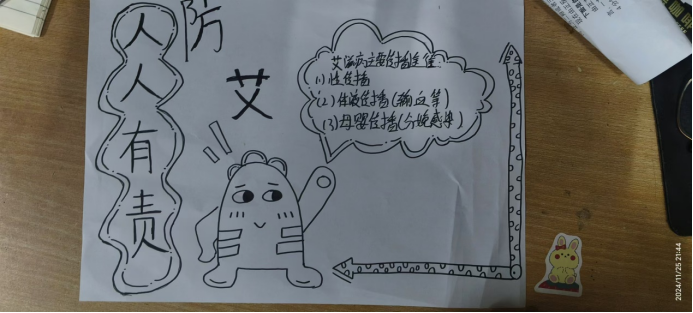 人人有责
防艾
艾滋病主要传播途径
(1)性传播
(2)体液传播(输血等)
(3)母婴传播(分娩感染)
2024/11/25 21:44